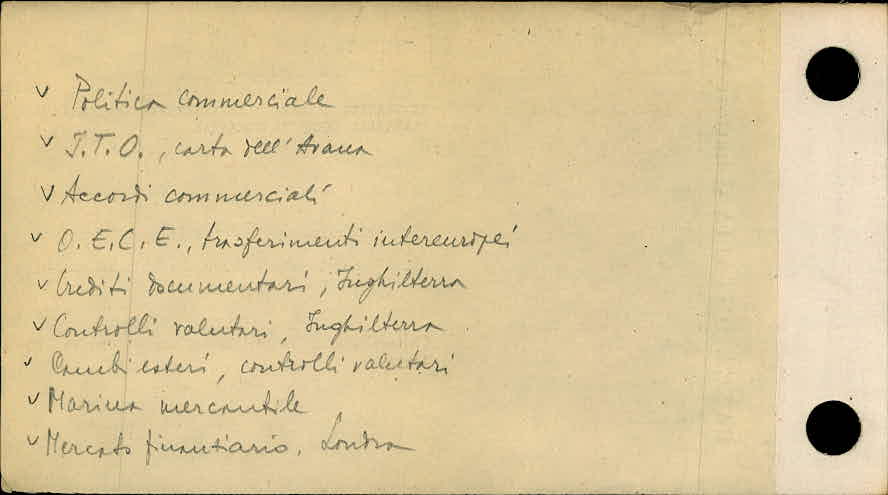 ✓ Politica commerciale
✓ I.T.O., carta dell'Avana
✓ Accordi commerciali
✓ O.E.C.E., trasferimenti intereuropei
✓ Crediti documentari, Inghilterra
✓ Controlli valutari, Inghilterra
✓ Cambi esteri, controlli valutari
✓ Marina mercantile
✓ Mercato finanziario. Londra